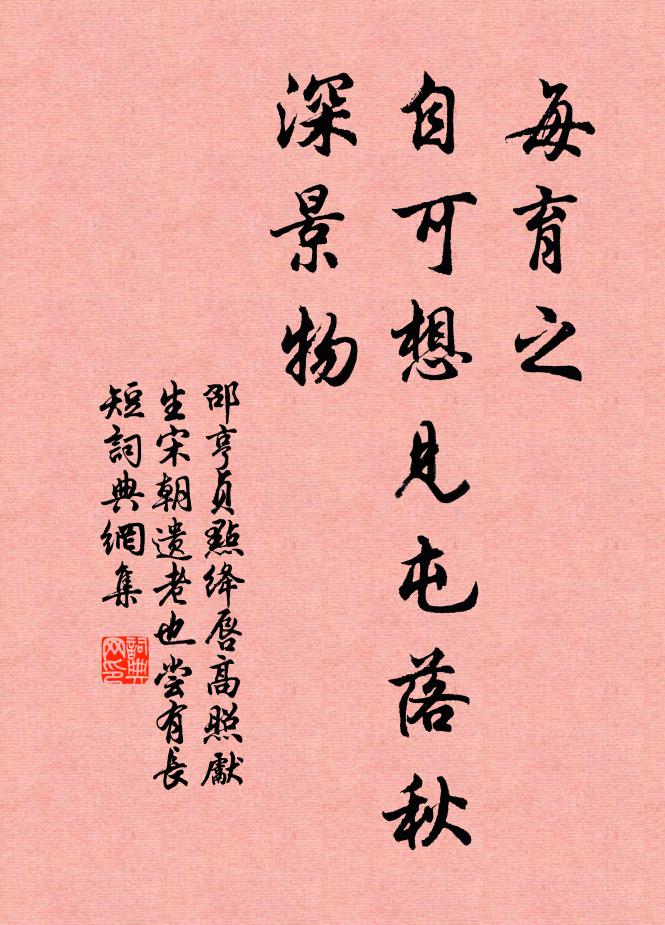 每育之
自可想見屯落秋
深景物
邵亨貞點絳唇高照獻
生宋朝遺老也嘗有長
短詞典網集
詞典网印